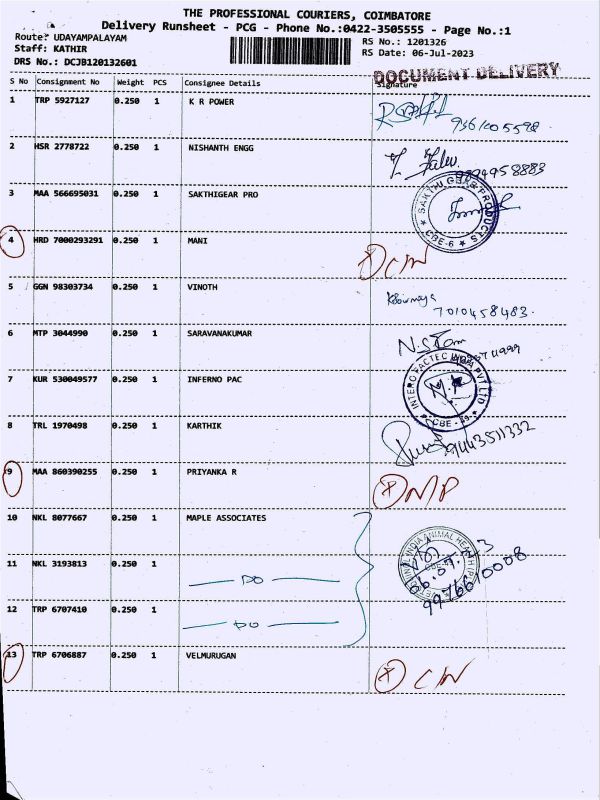 THE PROFESSIONAL COURIERS, COIMBATORE
Delivery Runsheet - PCG - Phone No.:0422-3505555 - Page No.:1
Route: UDAYAMPALAYAM
Staff: KATHIR
DRS No.: DCJB120132601
RS No.: 1201326
RS Date: 06-Jul-2023
DOCUMENT DELIVERY
S No Consignment No Weight PCS Consignee Details Signature
1 TRP 5927127 0.250 1 K R POWER
2 HSR 2778722 0.250 1 NISHANTH ENGG
3 MAA 566695031 0.250 1 SAKTHIGEAR PRO
SAKTHI GEAR PRODUCTS
★ CBE-6 ★
4 HRD 7000293291 0.250 1 MANI
5 GGN 98303734 0.250 1 VINOTH
7010458483.
6 MTP 3044990 0.250 1 SARAVANAKUMAR
7 KUR 530049577 0.250 1 INFERNO PAC
8 TRL 1970498 0.250 1 KARTHIK
9443511332
9 MAA 860390255 0.250 1 PRIYANKA R
10 NKL 8077667 0.250 1 MAPLE ASSOCIATES
11 NKL 3193813 0.250 1
DO
9976610008
12 TRP 6707410 0.250 1
DO
13 TRP 6706887 0.250 1 VELMURUGAN